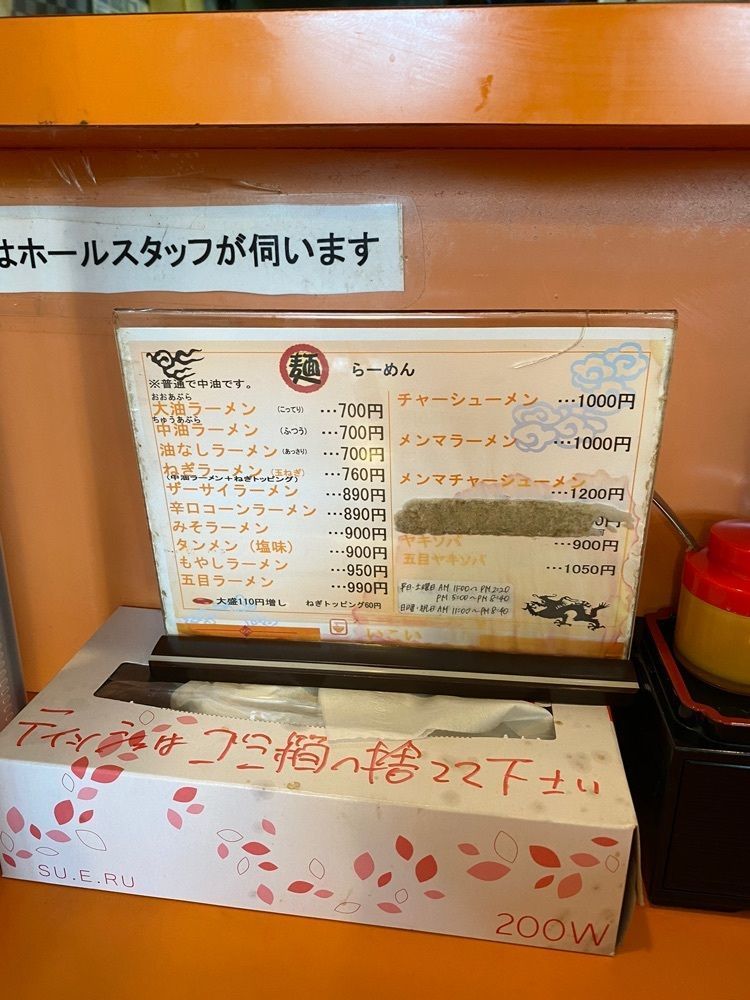 はホールスタッフが伺います
麺 らーめん
※普通で中油です。
おおあぶら
大油ラーメン (こってり) …700円
ちゅうあぶら
中油ラーメン (ふつう) …700円
油なしラーメン (あっさり) …700円
ねぎラーメン (玉ねぎ) …760円
(中油ラーメン+ねぎトッピング)
ザーサイラーメン …890円
辛口コーンラーメン …890円
みそラーメン …900円
タンメン (塩味) …900円
もやしラーメン …950円
五目ラーメン …990円
大盛110円増し ねぎトッピング60円
チャーシューメン …1000円
メンマラーメン …1000円
メンマチャーシューメン
…1200円
0円
ヤキソバ …900円
五目ヤキソバ …1050円
平日・土曜日 AM 11:00~PM 2:20
PM 5:00~PM 8:40
日曜・祝日 AM 11:00~PM 8:40
いこい
ティッシュはゴミ箱へ捨てて下さい
SU.E.RU
200W